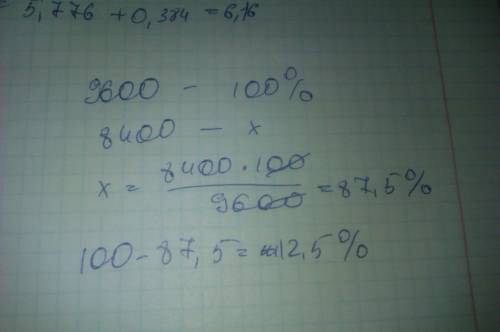 = 5,776 + 0,384 = 6,16
9600 - 100%
8400 - x
x = 8400·100 / 9600 = 87,5%
100 - 87,5 = 12,5%